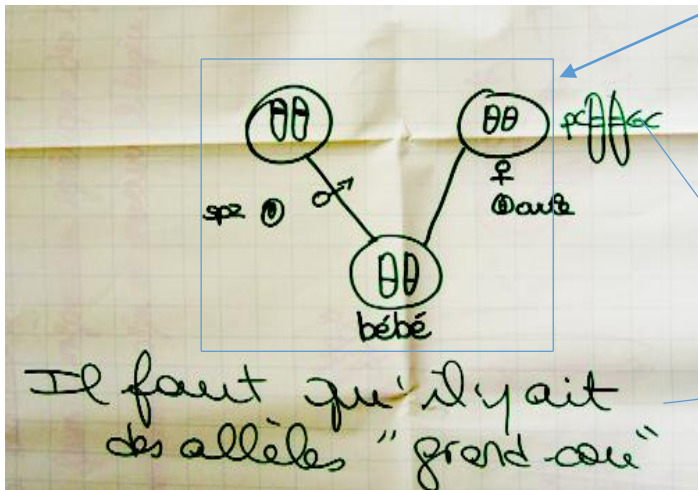 pC GC
♂
♀
spz
ovule
bébé
Il faut qu'il y ait
des allèles "grand-cou"